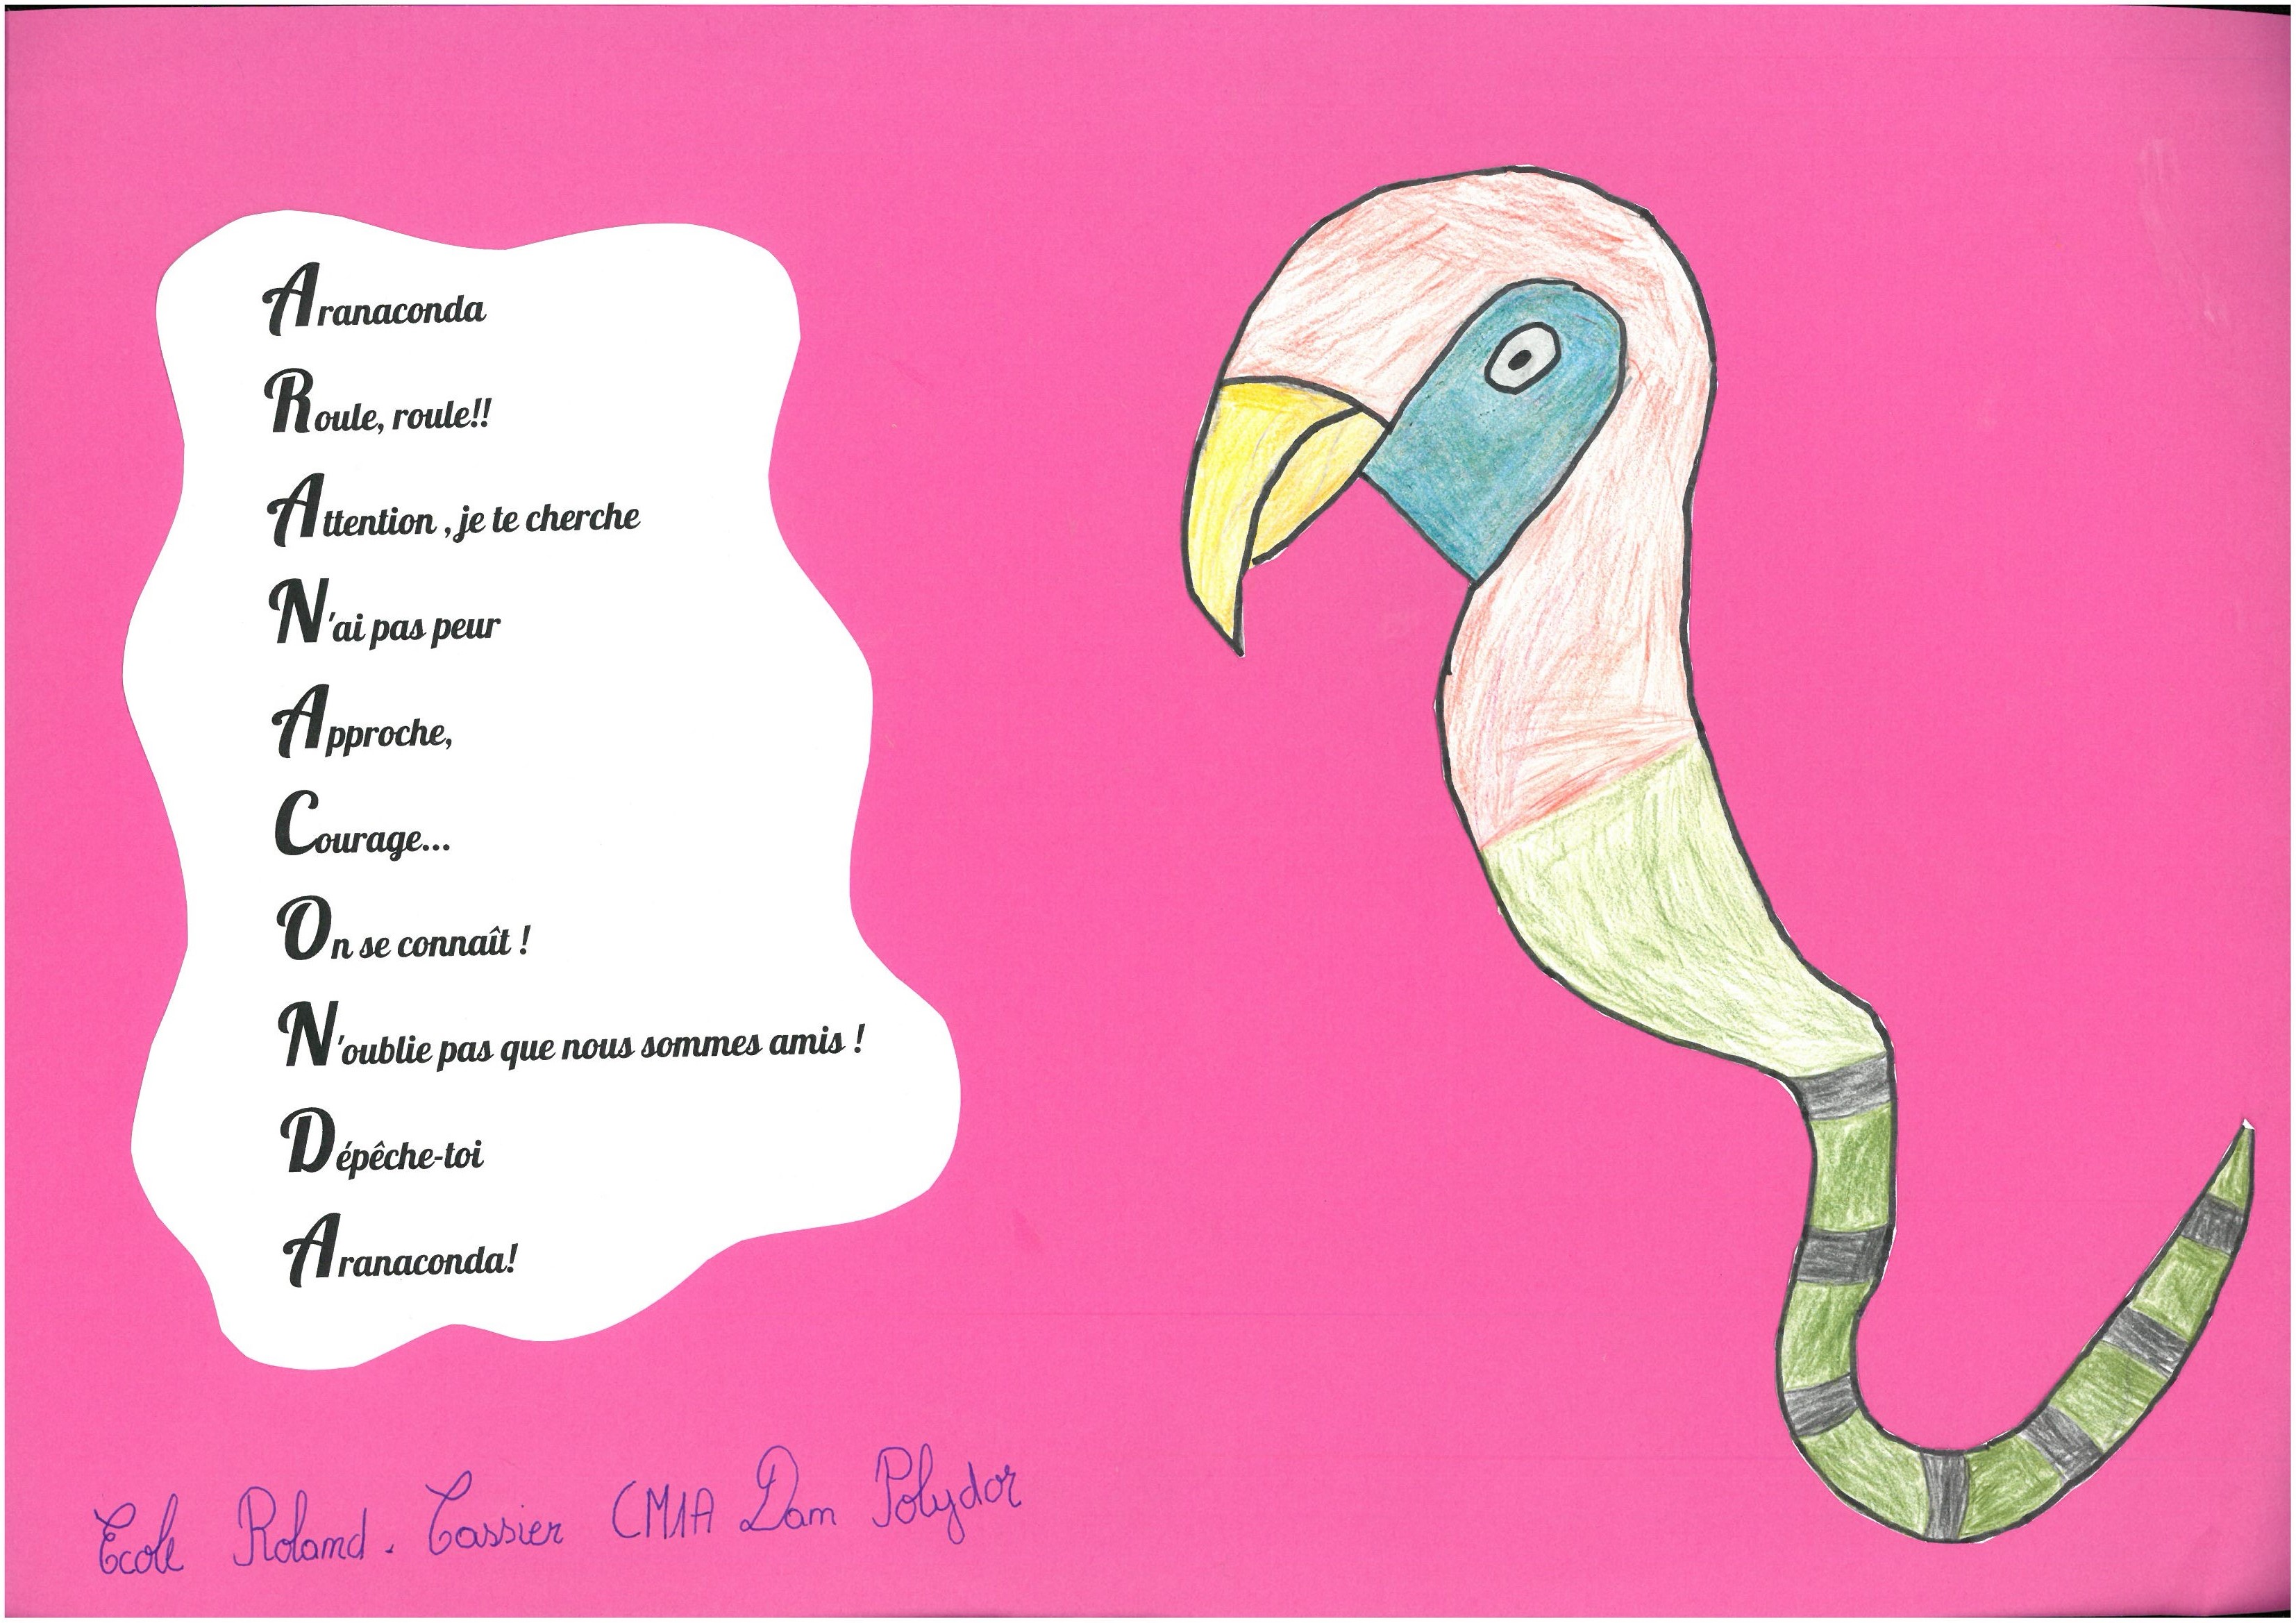 Aranaconda
Roule, roule!!
Attention , je te cherche
N'ai pas peur
Approche,
Courage...
On se connaît !
N'oublie pas que nous sommes amis !
Dépêche-toi
Aranaconda!
Ecole Roland. Cassier CM1A Dam Polydor